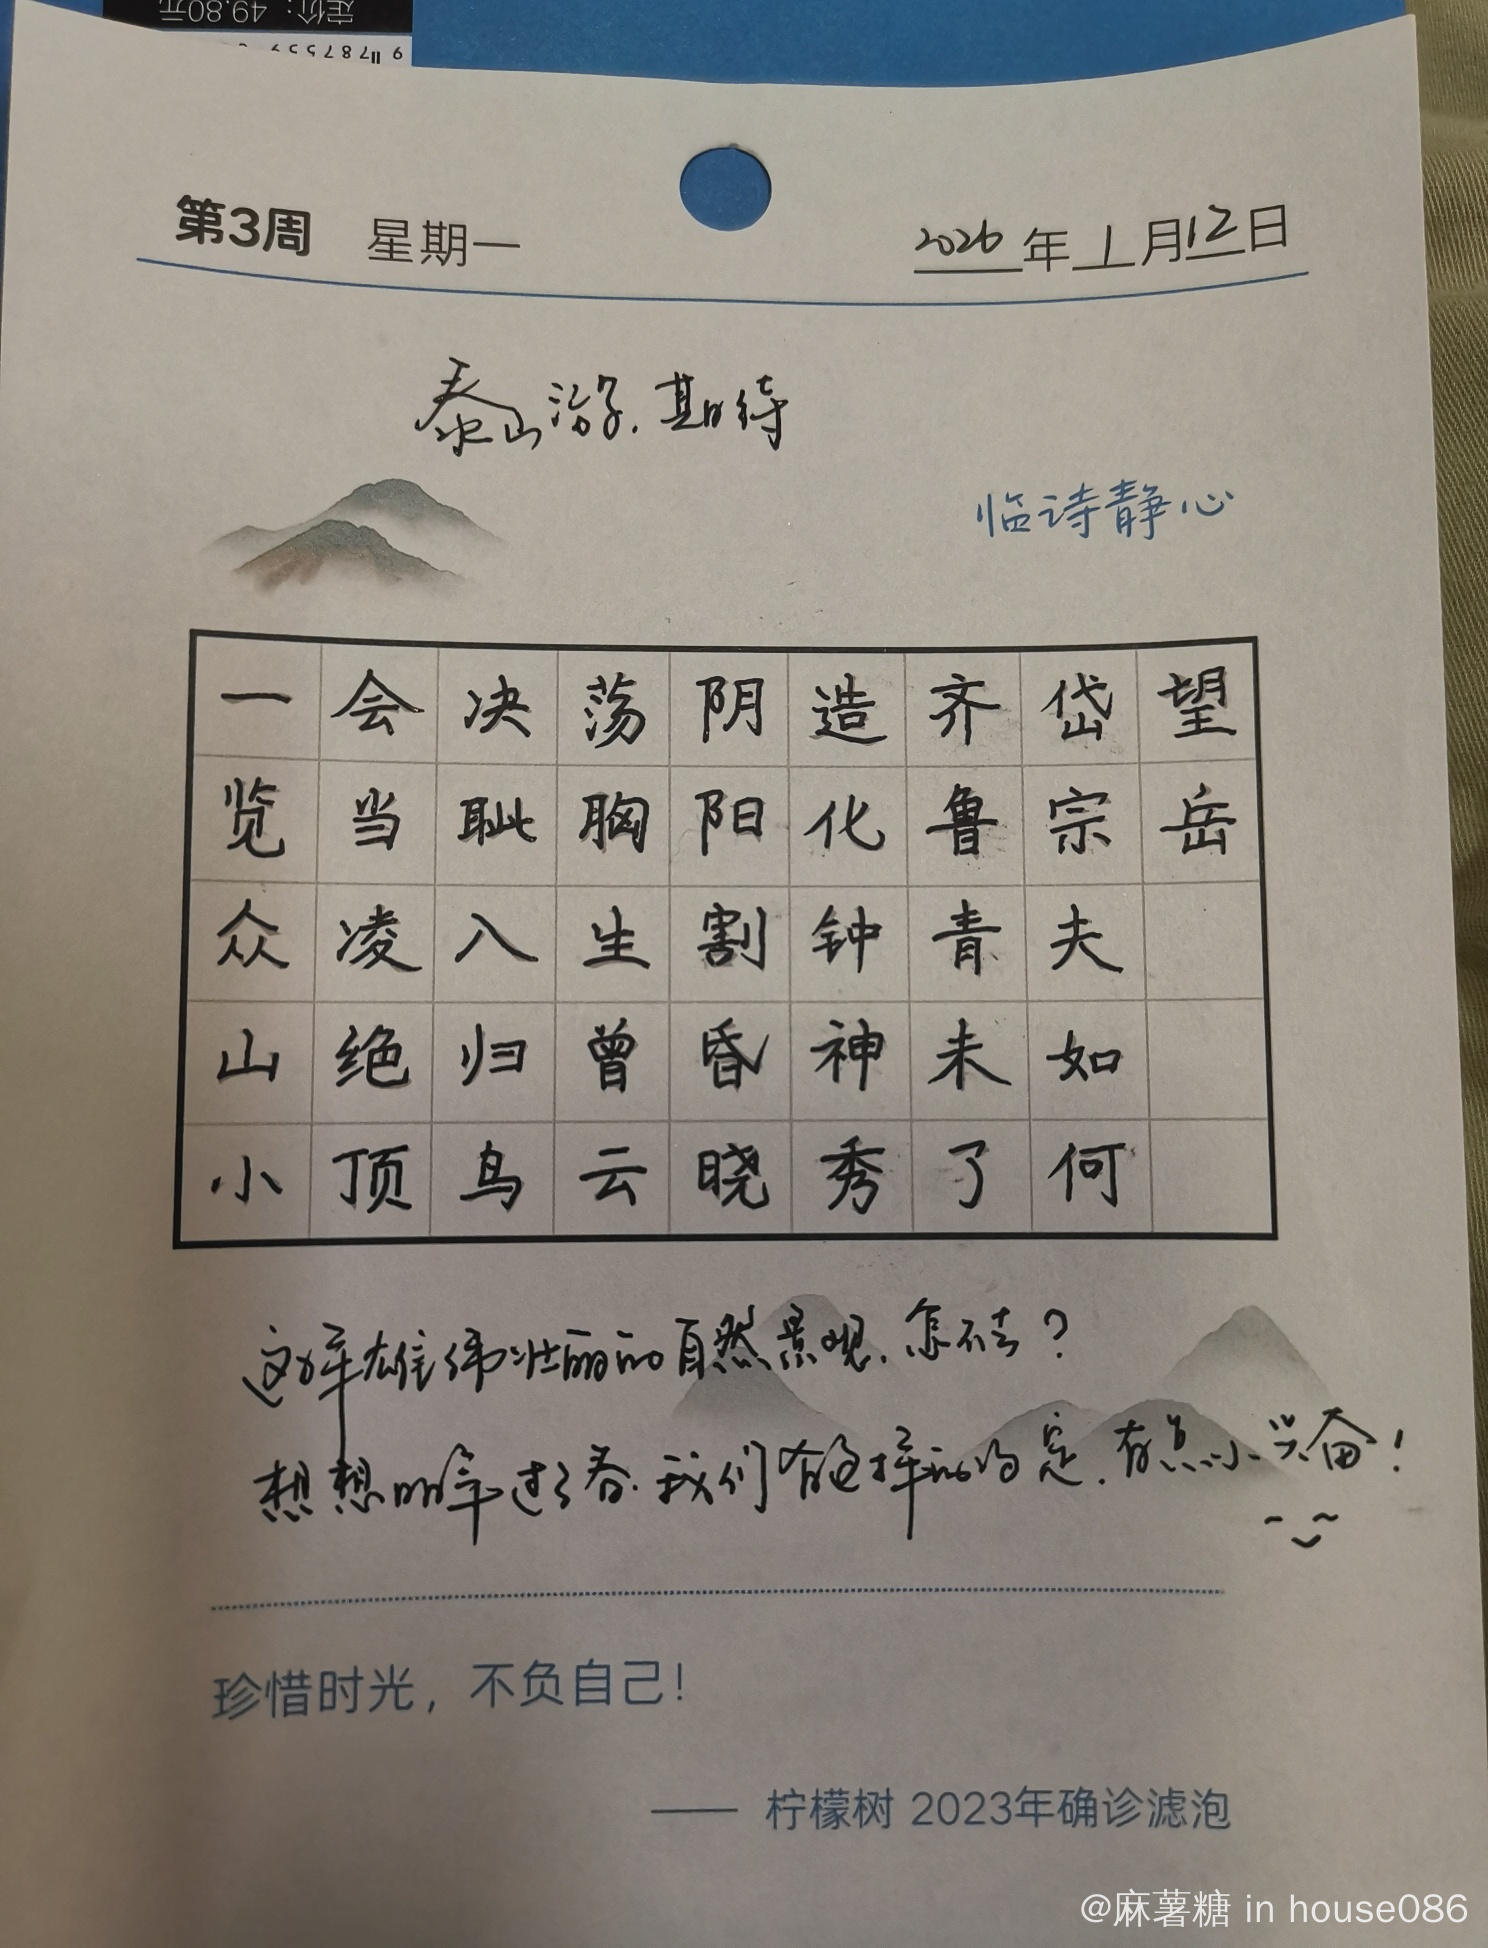 定价：49.80元
9 787559
第3周 星期一 2026年1月12日
泰山游.期待
临诗静心
望岳
岱宗夫如何
齐鲁青未了
造化钟神秀
阴阳割昏晓
荡胸生曾云
决眦入归鸟
会当凌绝顶
一览众山小
这样雄伟壮丽的自然景观.怎不去？
想想明年过了春.我们有这样的约定.有点小兴奋！
珍惜时光，不负自己！
—— 柠檬树 2023年确诊滤泡
@麻薯糖 in house086